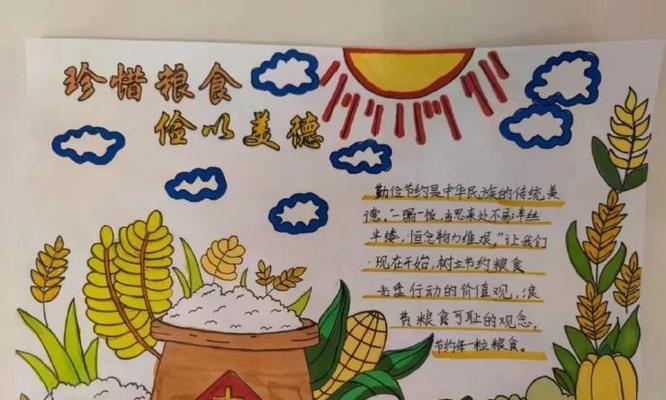 珍惜粮食
俭以美德
勤俭节约是中华民族的传统美
德,“一粥一饭,当思来处不易;半丝
半缕,恒念物力维艰。”让我们
现在开始,树立节约粮食
光盘行动的价值观,浪
费粮食可耻的观念,
节约每一粒粮食。